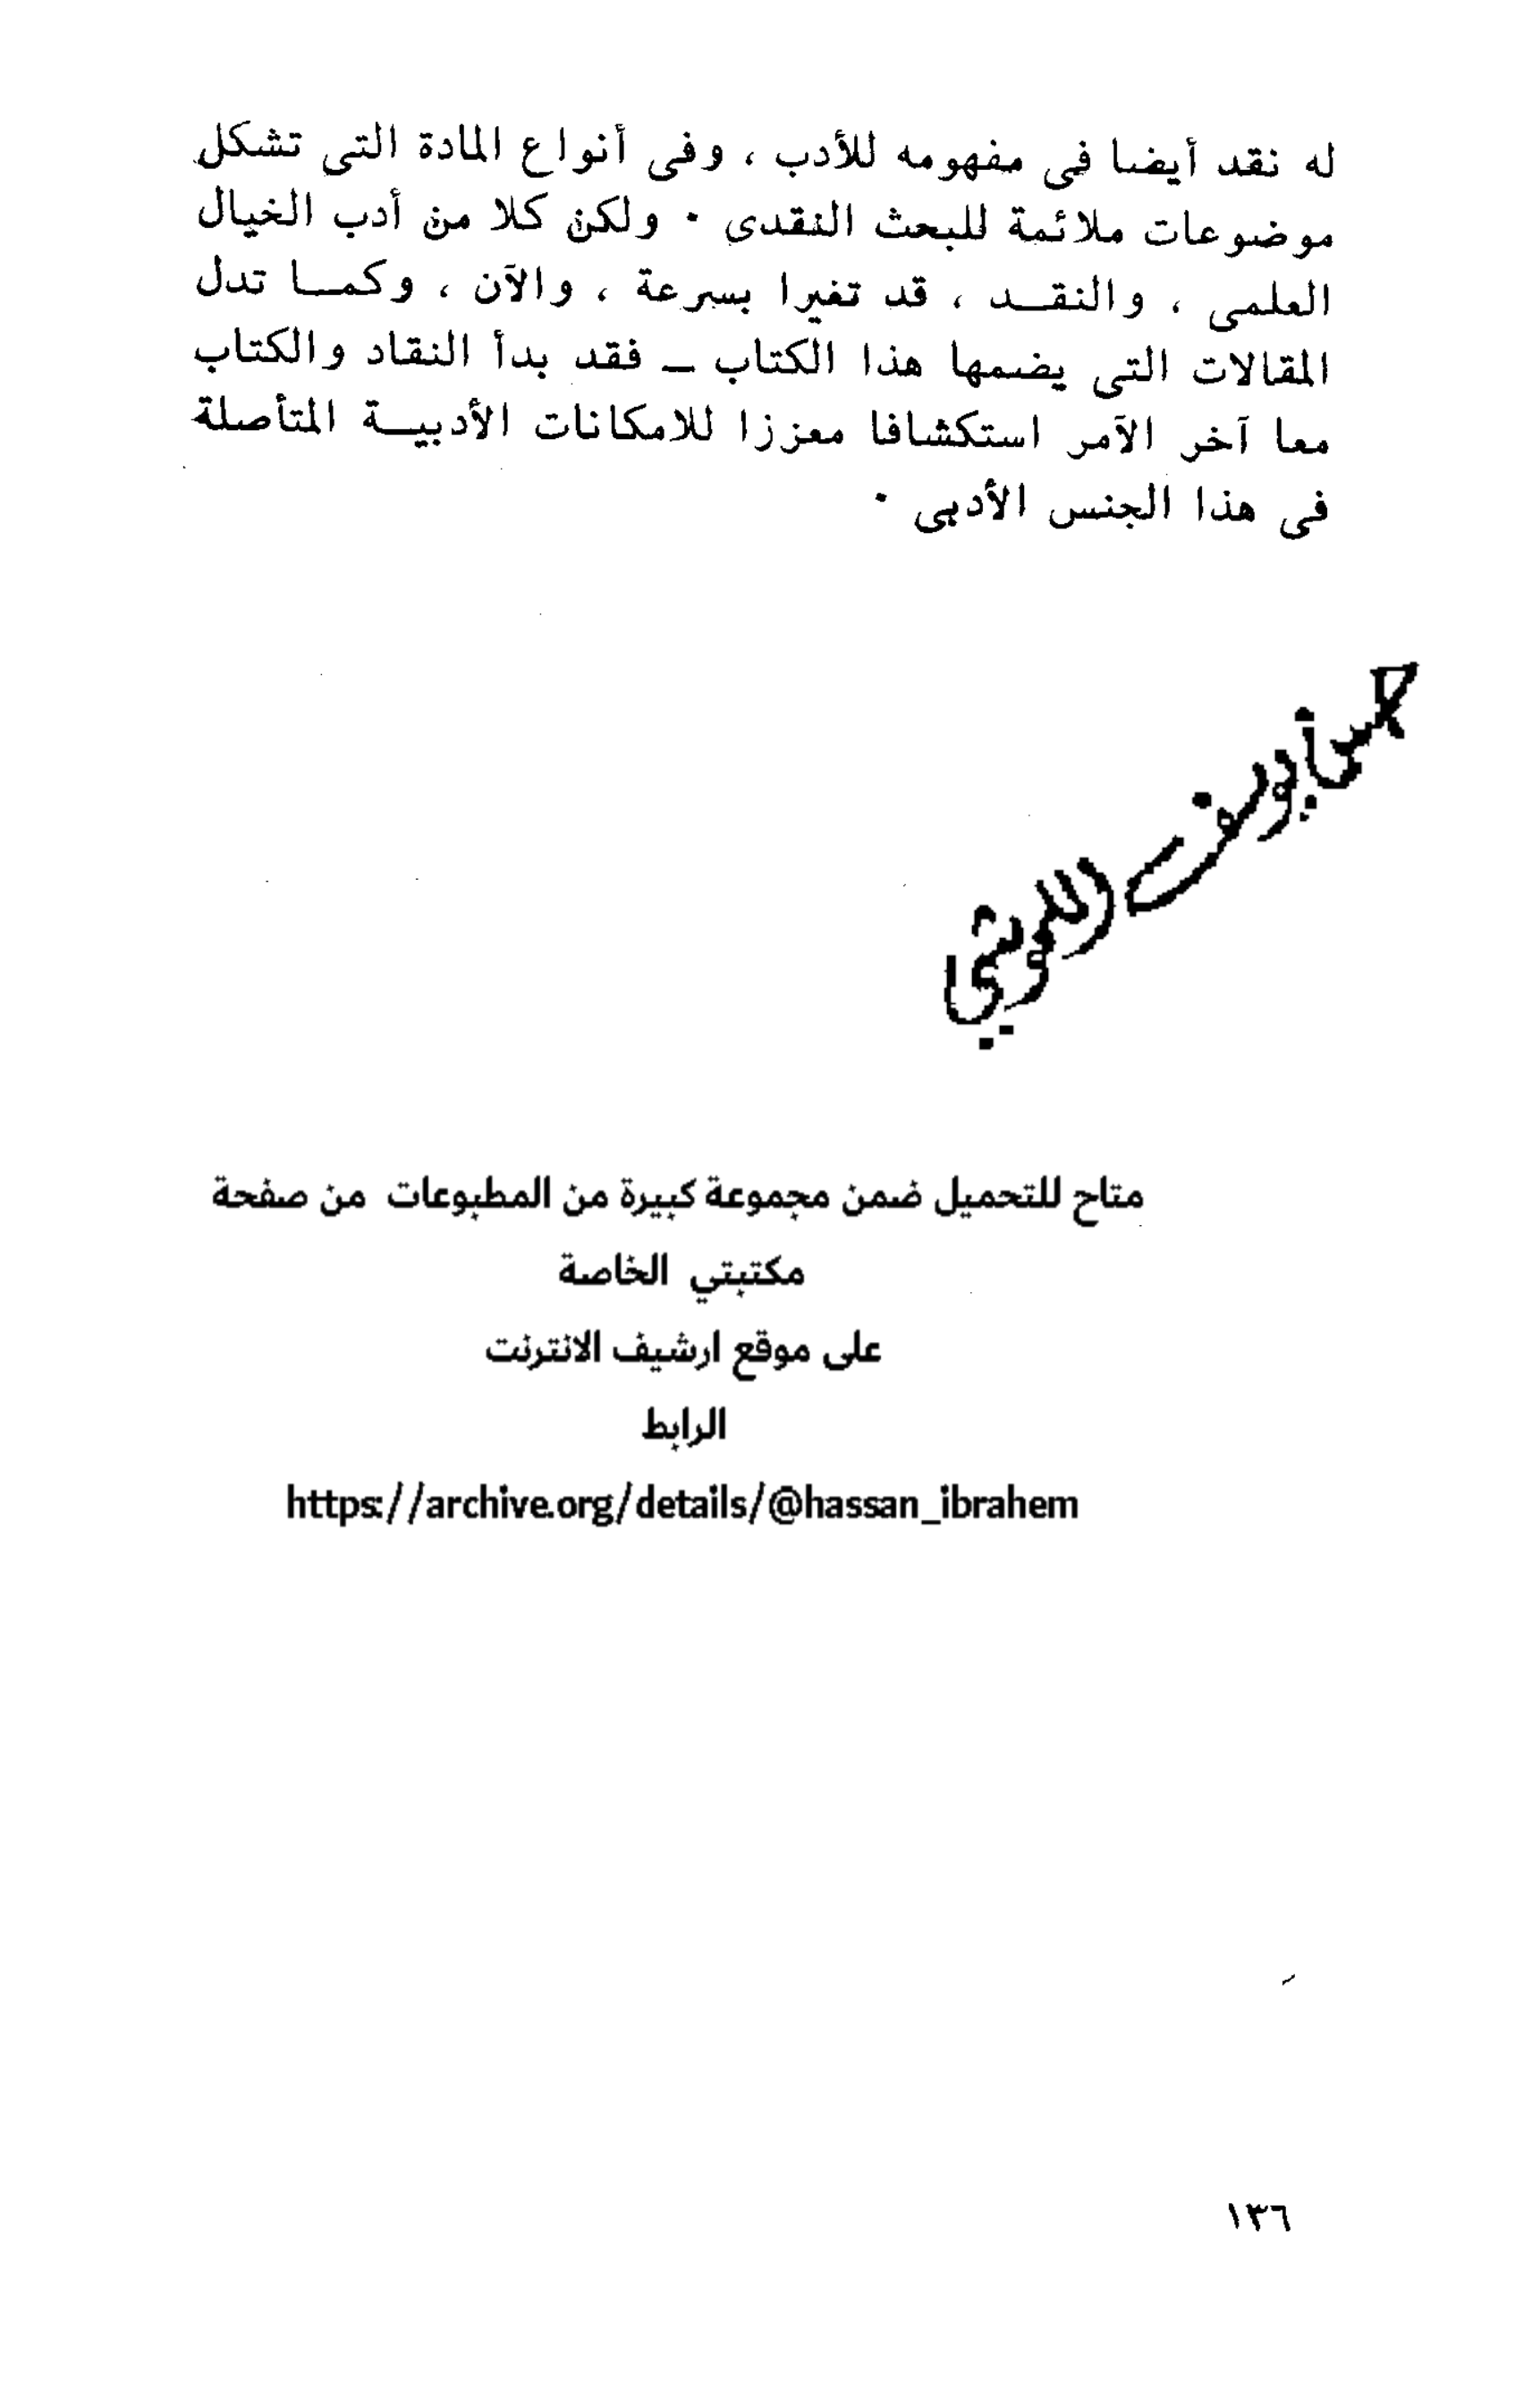 له نقد أيضا فى مفهومه للأدب ، وفى أنواع المادة التى تشكل
موضوعات ملائمة للبحث النقدى · ولكن كلا من أدب الخيال
العلمى ، والنقــد ، قد تغيرا بسرعة ، والآن ، وكمــا تدل
المقالات التى يضمها هذا الكتاب ــ فقد بدأ النقاد والكتاب
معا آخر الآمر استكشافا معززا للامكانات الأدبيــة المتأصلة
فى هذا الجنس الأدبى ·
متاح للتحميل ضمن مجموعة كبيرة من المطبوعات من صفحة
مكتبتي الخاصة
على موقع ارشيف الانترنت
الرابط
https://archive.org/details/@hassan_ibrahem
١٣٦